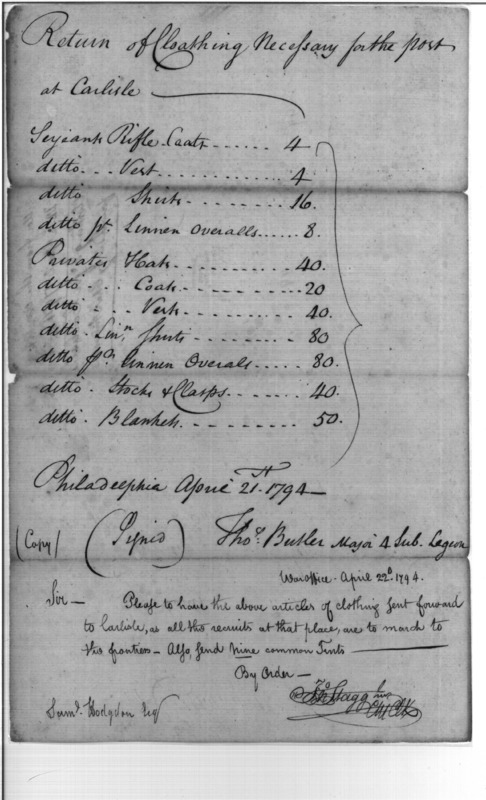 Return of Cloathing Necessary for the post
at Carlisle
Serjeants Rifle Coats ...... 4
ditto ... Vest ........ 4
ditto Shirts ........ 16.
ditto pr. Linnen Overalls ..... 8.
Privates Hats ......... 40.
ditto ... Coats ........ 20
ditto .. Vests ........ 40.
ditto . Linn. Shirts ....... 80
ditto prs Linnen Overals ..... 80.
ditto . Stocks & Clasps ....... 40.
ditto . Blankets ......... 50.
Philadelphia April 21st. 1794
(Copy) (Signed) Thos. Butler Major 4 Sub. Legeon
War office. April 22d. 1794.
Sir — Please to have the above articles of clothing sent forward
to Carlisle, as all the recruits at that place, are to march to
the frontiers — Also, send nine common Tents
By Order —
Jno Stagg Junr
Saml. Hodgdon Esq